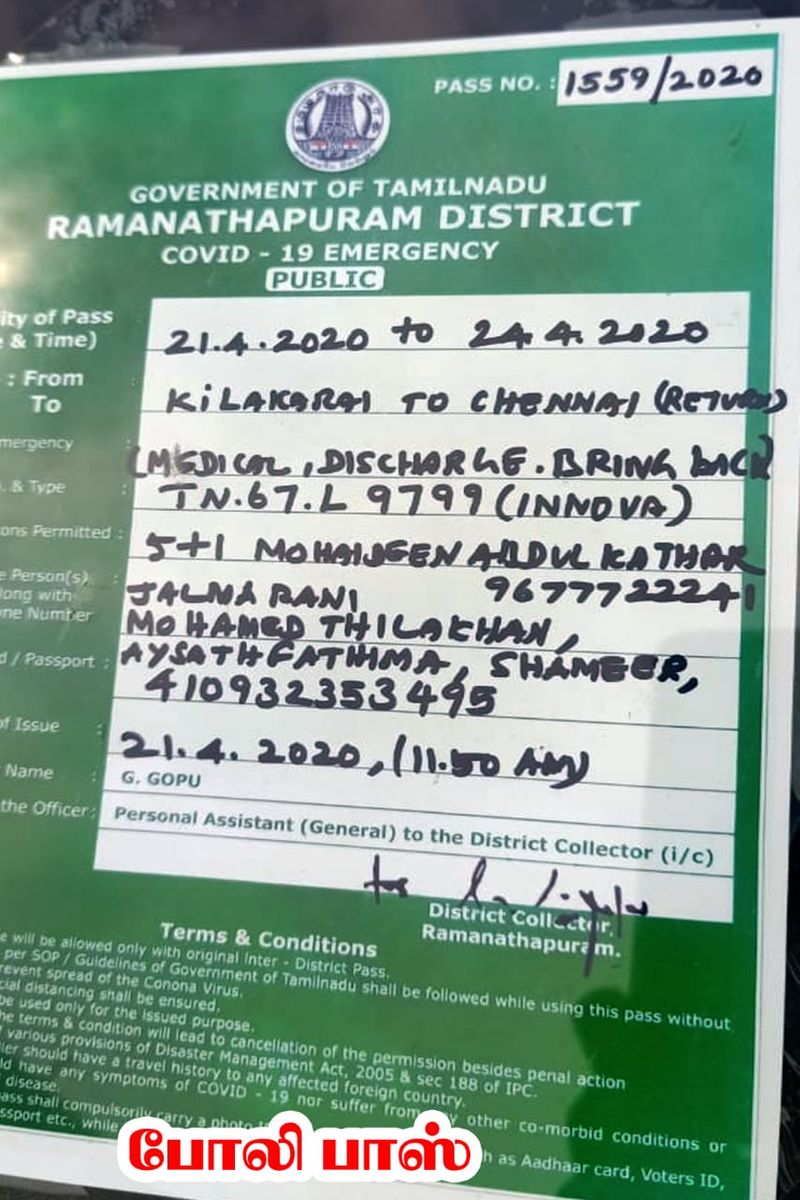 PASS NO. : 1559/2020
GOVERNMENT OF TAMILNADU
RAMANATHAPURAM DISTRICT
COVID - 19 EMERGENCY
PUBLIC
ity of Pass
& Time) 21.4.2020 to 24.4.2020
: From
To : KILAKARAI TO CHENNAI (RETURN)
mergency : (MEDICAL, DISCHARGE. BRING BACK
. & Type : TN.67.L 9799 (INNOVA)
ons Permitted : 5+1 MOHAIJEEN ABDUL KATHAR
e Person(s) : JALNA RANI 9677722241
long with
ne Number MOHAMED THILAKHAN,
d / Passport : AYSATH FATHIMA, SHAMEER,
410932353495
of Issue : 21.4.2020, (11.50 AM)
Name : G. GOPU
the Officer : Personal Assistant (General) to the District Collector (i/c)
for
District Collector,
Ramanathapuram.
Terms & Conditions
e will be allowed only with original Inter - District Pass.
per SOP / Guidelines of Government of Tamilnadu shall be followed while using this pass without
revent spread of the Conona Virus.
cial distancing shall be ensured.
be used only for the issued purpose.
he terms & condition will lead to cancellation of the permission besides penal action
various provisions of Disaster Management Act, 2005 & sec 188 of IPC.
ler should have a travel history to any affected foreign country.
ld have any symptoms of COVID - 19 nor suffer from other co-morbid conditions or
disease.
ass shall compulsorily carry a photo h as Aadhaar card, Voters ID,
ssport etc., while
போலி பாஸ்